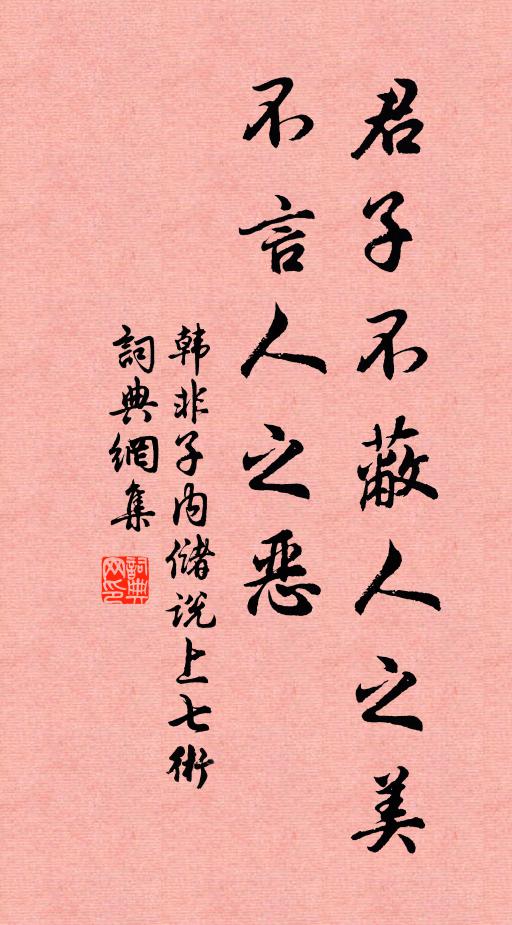 君子不蔽人之美
不言人之恶
韩非子内储说上七術
詞典網集
詞典網印